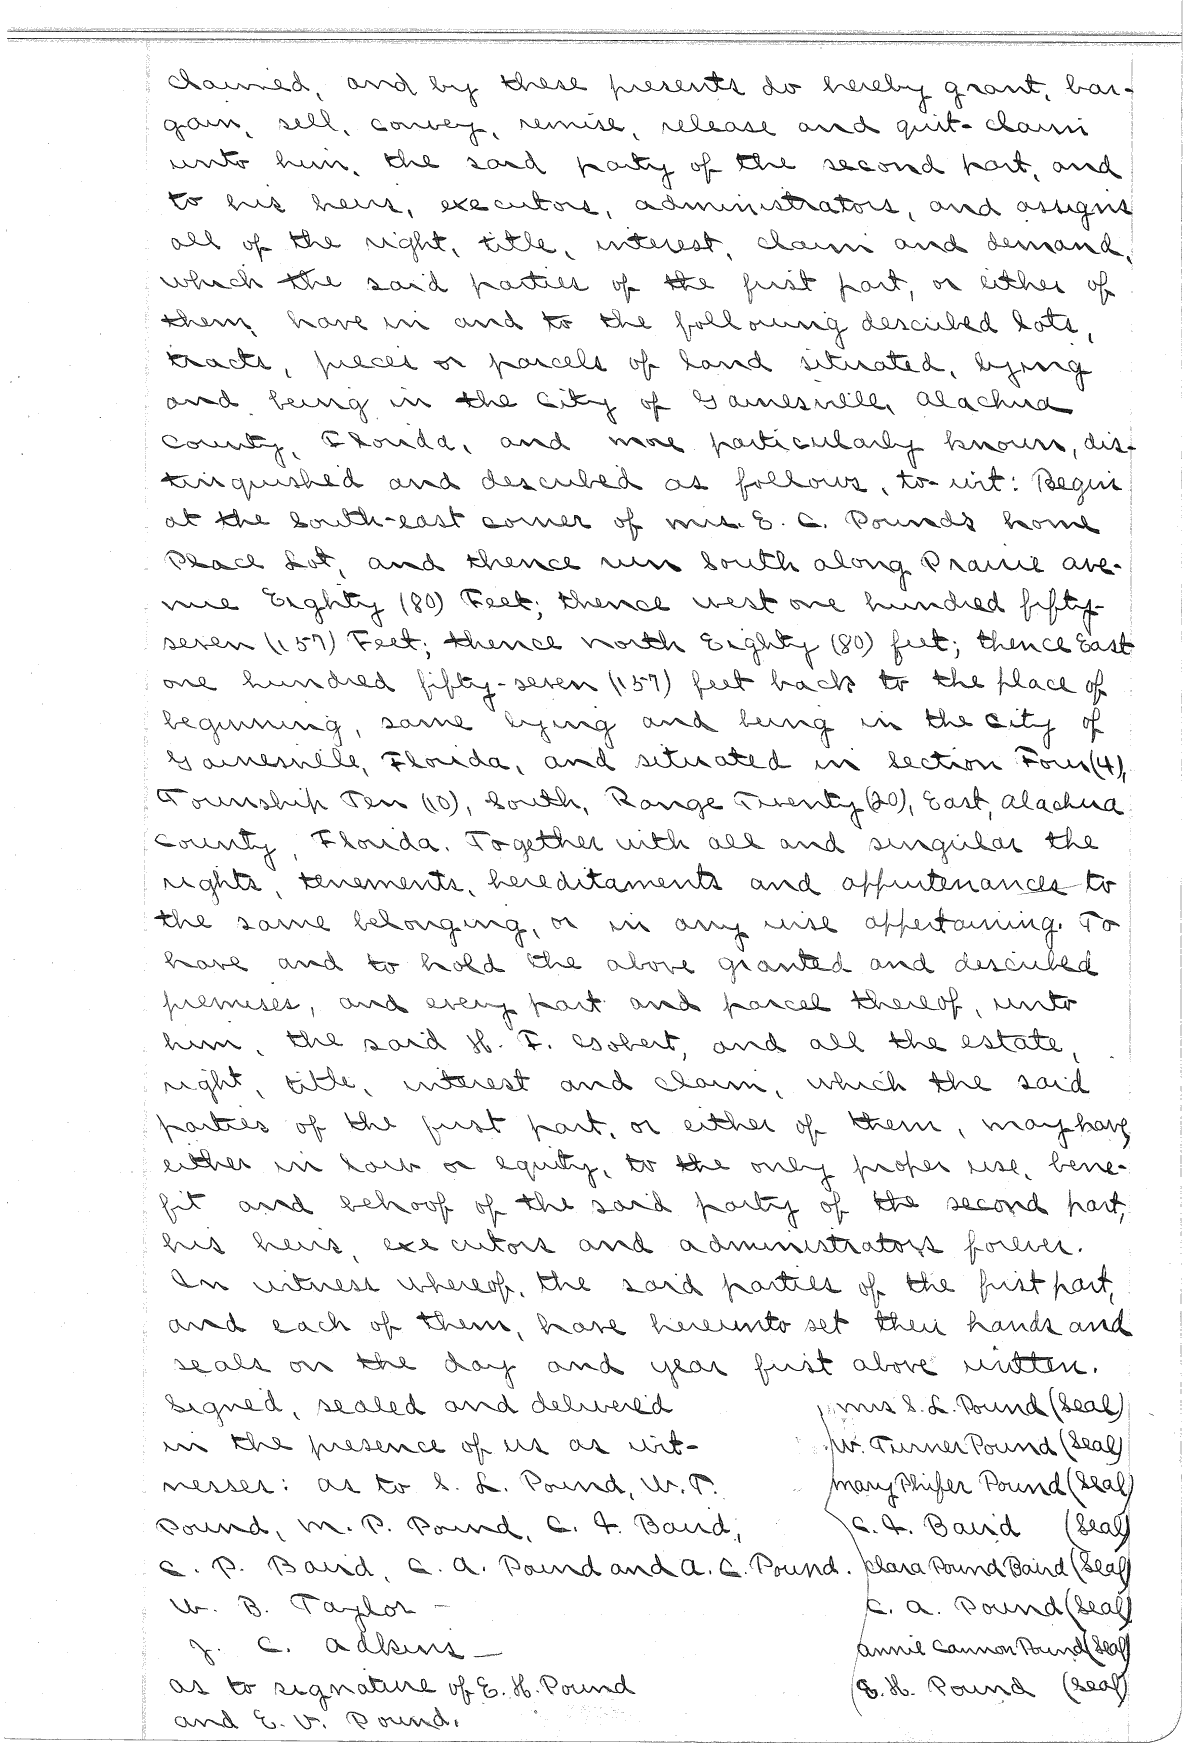 claimed, and by these presents do hereby grant, bar-
gain, sell, convey, remise, release and quit-claim
unto him, the said party of the second part, and
to his heirs, executors, administrators, and assigns
all of the right, title, interest, claim and demand,
which the said parties of the first part, or either of
them, have in and to the following described lots,
tracts, pieces or parcels of land situated, lying
and being in the City of Gainesville, Alachua
County, Florida, and more particularly known, dis-
tinguished and described as follows, to-wit: Begin
at the South-east corner of Mrs. E. C. Pounds home
Place Lot, and thence run South along Prairie ave-
nue Eighty (80) Feet; thence west one hundred fifty-
seven (157) Feet; thence north Eighty (80) feet; thence East
one hundred fifty-seven (157) feet back to the place of
beginning, same lying and being in the City of
Gainesville, Florida, and situated in Section Four (4),
Township Ten (10), South, Range Twenty (20), East, Alachua
County, Florida. Together with all and singular the
rights, tenements, hereditaments and appurtenances to
the same belonging, or in any wise appertaining. To
have and to hold the above granted and described
premises, and every part and parcel thereof, unto
him, the said H. F. , and all the estate,
right, title, interest and claim, which the said
parties of the first part, or either of them, may have,
either in law or equity, to the only proper use, bene-
fit and behoof of the said party of the second part,
his heirs, executors and administrators forever.
In witness whereof, the said parties of the first part,
and each of them, have hereunto set their hands and
seals on the day and year first above written.
Signed, sealed and delivered Mrs S. L. Pound (Seal)
in the presence of us as wit- W. Turner Pound (Seal)
nesses: as to S. L. Pound, W. T. Mary Phifer Pound (Seal)
Pound, M. P. Pound, C. A. Baird, C. A. Baird (Seal)
C. P. Baird, C. A. Pound and A. C. Pound. Clara Pound Baird (Seal)
W. B. Taylor - C. A. Pound (Seal)
J. C. Adkins - Annie Cannon Pound (Seal)
as to signature of E. H. Pound E. H. Pound (Seal)
and E. V. Pound.